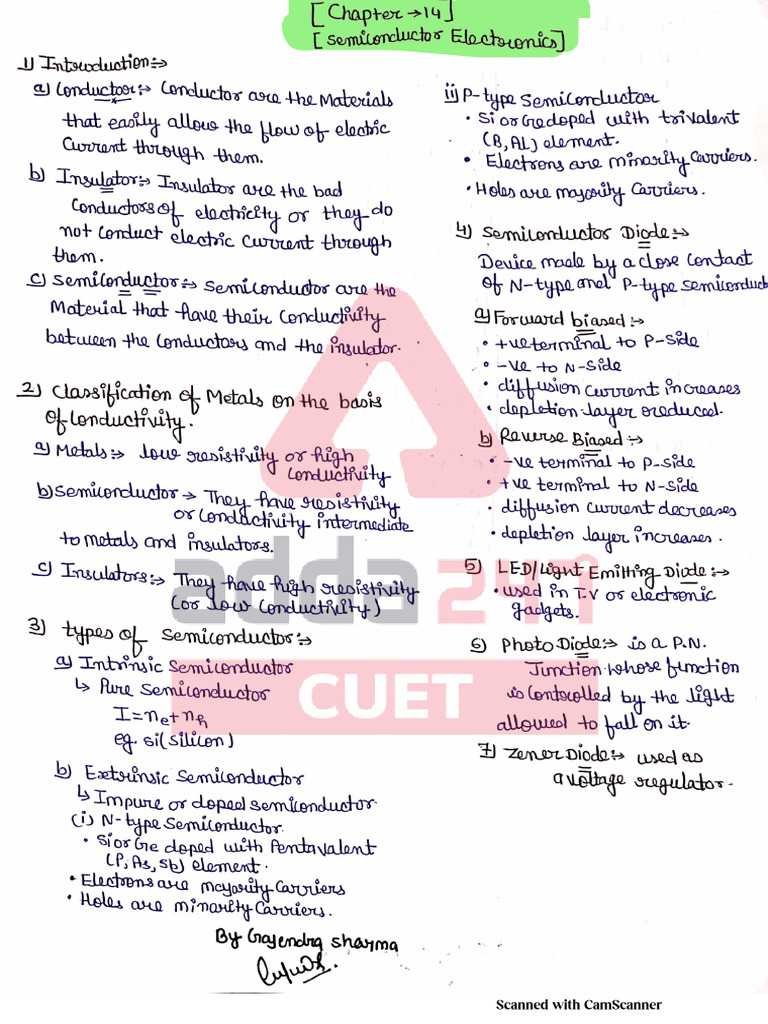 [Chapter → 14]
[Semiconductor Electronics]
1) Introduction:→
a) Conductor:→ Conductor are the Materials
that easily allow the flow of electric
Current through them.
b) Insulator:→ Insulator are the bad
Conductors of electricity or they do
not conduct electric Current through
them.
c) Semiconductor:→ Semiconductor are the
Material that have their Conductivity
between the Conductors and the insulator.
2) Classification of Metals on the basis
of Conductivity.
a) Metals:→ low resistivity or high
Conductivity
b) Semiconductor → They have resistivity
or Conductivity intermediate
to metals and insulators.
c) Insulators:→ They have high resistivity
(or low Conductivity)
3) types of Semiconductor:→
a) Intrinsic Semiconductor
↳ Pure Semiconductor
I = ne + nh
eg. si (silicon)
b) Extrinsic Semiconductor
↳ Impure or doped semiconductor.
(i) N-type Semiconductor.
• Si or Ge doped with Pentavalent
(P, As, Sb) element.
• Electrons are mayority Carriers
• Holes are minority Carriers.
By Gajendra Sharma
ii) P-type Semiconductor
• Si or Ge doped with trivalent
(B, AL) element.
• Electrons are minarity Carriers.
• Holes are majority Carriers.
4) Semiconductor Diode:→
Device made by a close Contact
of N-type and P-type Semiconduct
a) Forward biased:→
• +ve terminal to P-side
• -ve to N-side
• diffusion Current increases
• depletion layer reduced.
b) Reverse Biased:→
• -ve terminal to P-side
• +ve terminal to N-side
• diffusion current decreases
• depletion layer increases.
5) LED/Light Emitting Diode:→
• used in T.V or electronic
gadgets.
6) Photo Diode:→ is a P.N.
Junction whose function
is Controlled by the light
allowed to fall on it.
7) Zener Diode:→ used as
a voltage regulator.
adda247
CUET
Scanned with CamScanner